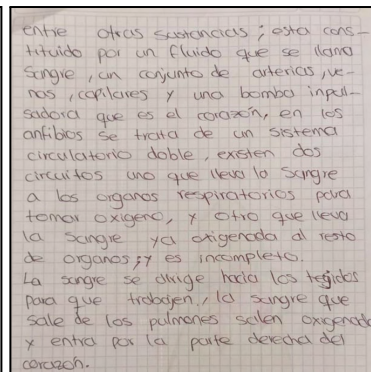 entre otras sustancias; esta cons-
tituido por un fluido que se llama
Sangre, un conjunto de arterias, ve-
nas, capilares y una bomba inpul-
sadora que es el corazón, en los
anfibios se trata de un sistema
circulatorio doble, existen dos
circuitos uno que lleva la sangre
a los organos respiratorios para
tomar oxigeno, y otro que lleva
la sangre ya oxigenada al resto
de organos; y es incompleto.
La sangre se dirige hacia los tegidos
para que trabajen, la sangre que
sale de los pulmones salen oxigenada
y entra por la parte derecha del
corazón.